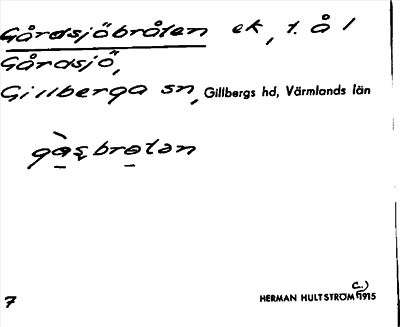 Gårdsjöbråten ek, 1. å 1
Gårdsjö,
Gillberga sn, Gillbergs hd, Värmlands län
HERMAN HULTSTRÖM (c.) 1915
7